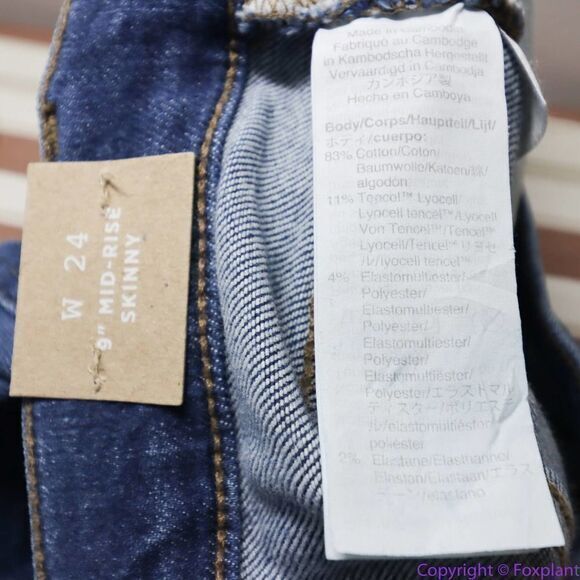 W 24
9" MID-RISE
SKINNY
Made in Cambodia
Fabriqué au Cambodge
in Kambodscha Hergestellt
Vervaardigd in Cambodja
カンボジア製
Hecho en Camboya
Body/Corps/Hauptteil/Lijf/
ボディ/cuerpo:
83% Cotton/Coton/
Baumwolle/Katoen/綿/
algodón
11% Tencel™ Lyocell/
Lyocell tencel™/Lyocell
Von Tencel™/Tencel™
Lyocell/Tencel™ リヨセ
ル/lyocell tencel™
4% Elastomultiester/
Polyester/
Elastomultiester/
Polyester/
Elastomultiester/
Polyester/
Elastomultiester/
Polyester/エラストマル
ティエステー/ポリエステ
ル/elastomultiester/
poliéster
2% Elastane/Élasthanne/
Elastan/Elastaan/エラス
タン/elastano
Copyright © Foxplant